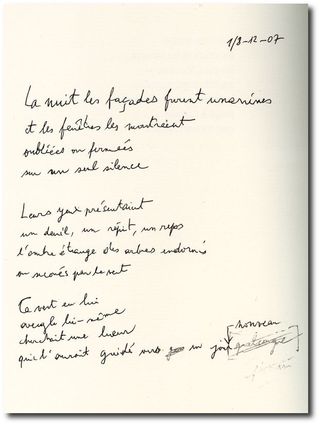 1/8-12-07
La nuit les façades furent unanimes
et les fenêtres les montraient
oubliées ou fermées
sur un seul silence
Leurs yeux présentaient
un deuil, un répit, un repos
l'ombre étrange des arbres endormis
ou secoués par le vent
Ce vent en lui
aveugle lui-même
cherchait une lueur
qui l'aurait guidé vers un jour nouveau